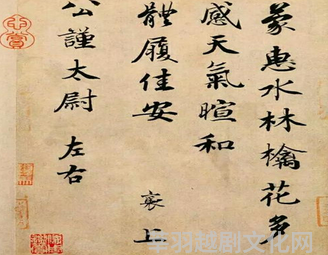 蒙惠水林檎花多
感天氣暄和
體履佳安 襄上
公謹太尉 左右
芊羽越剧文化网